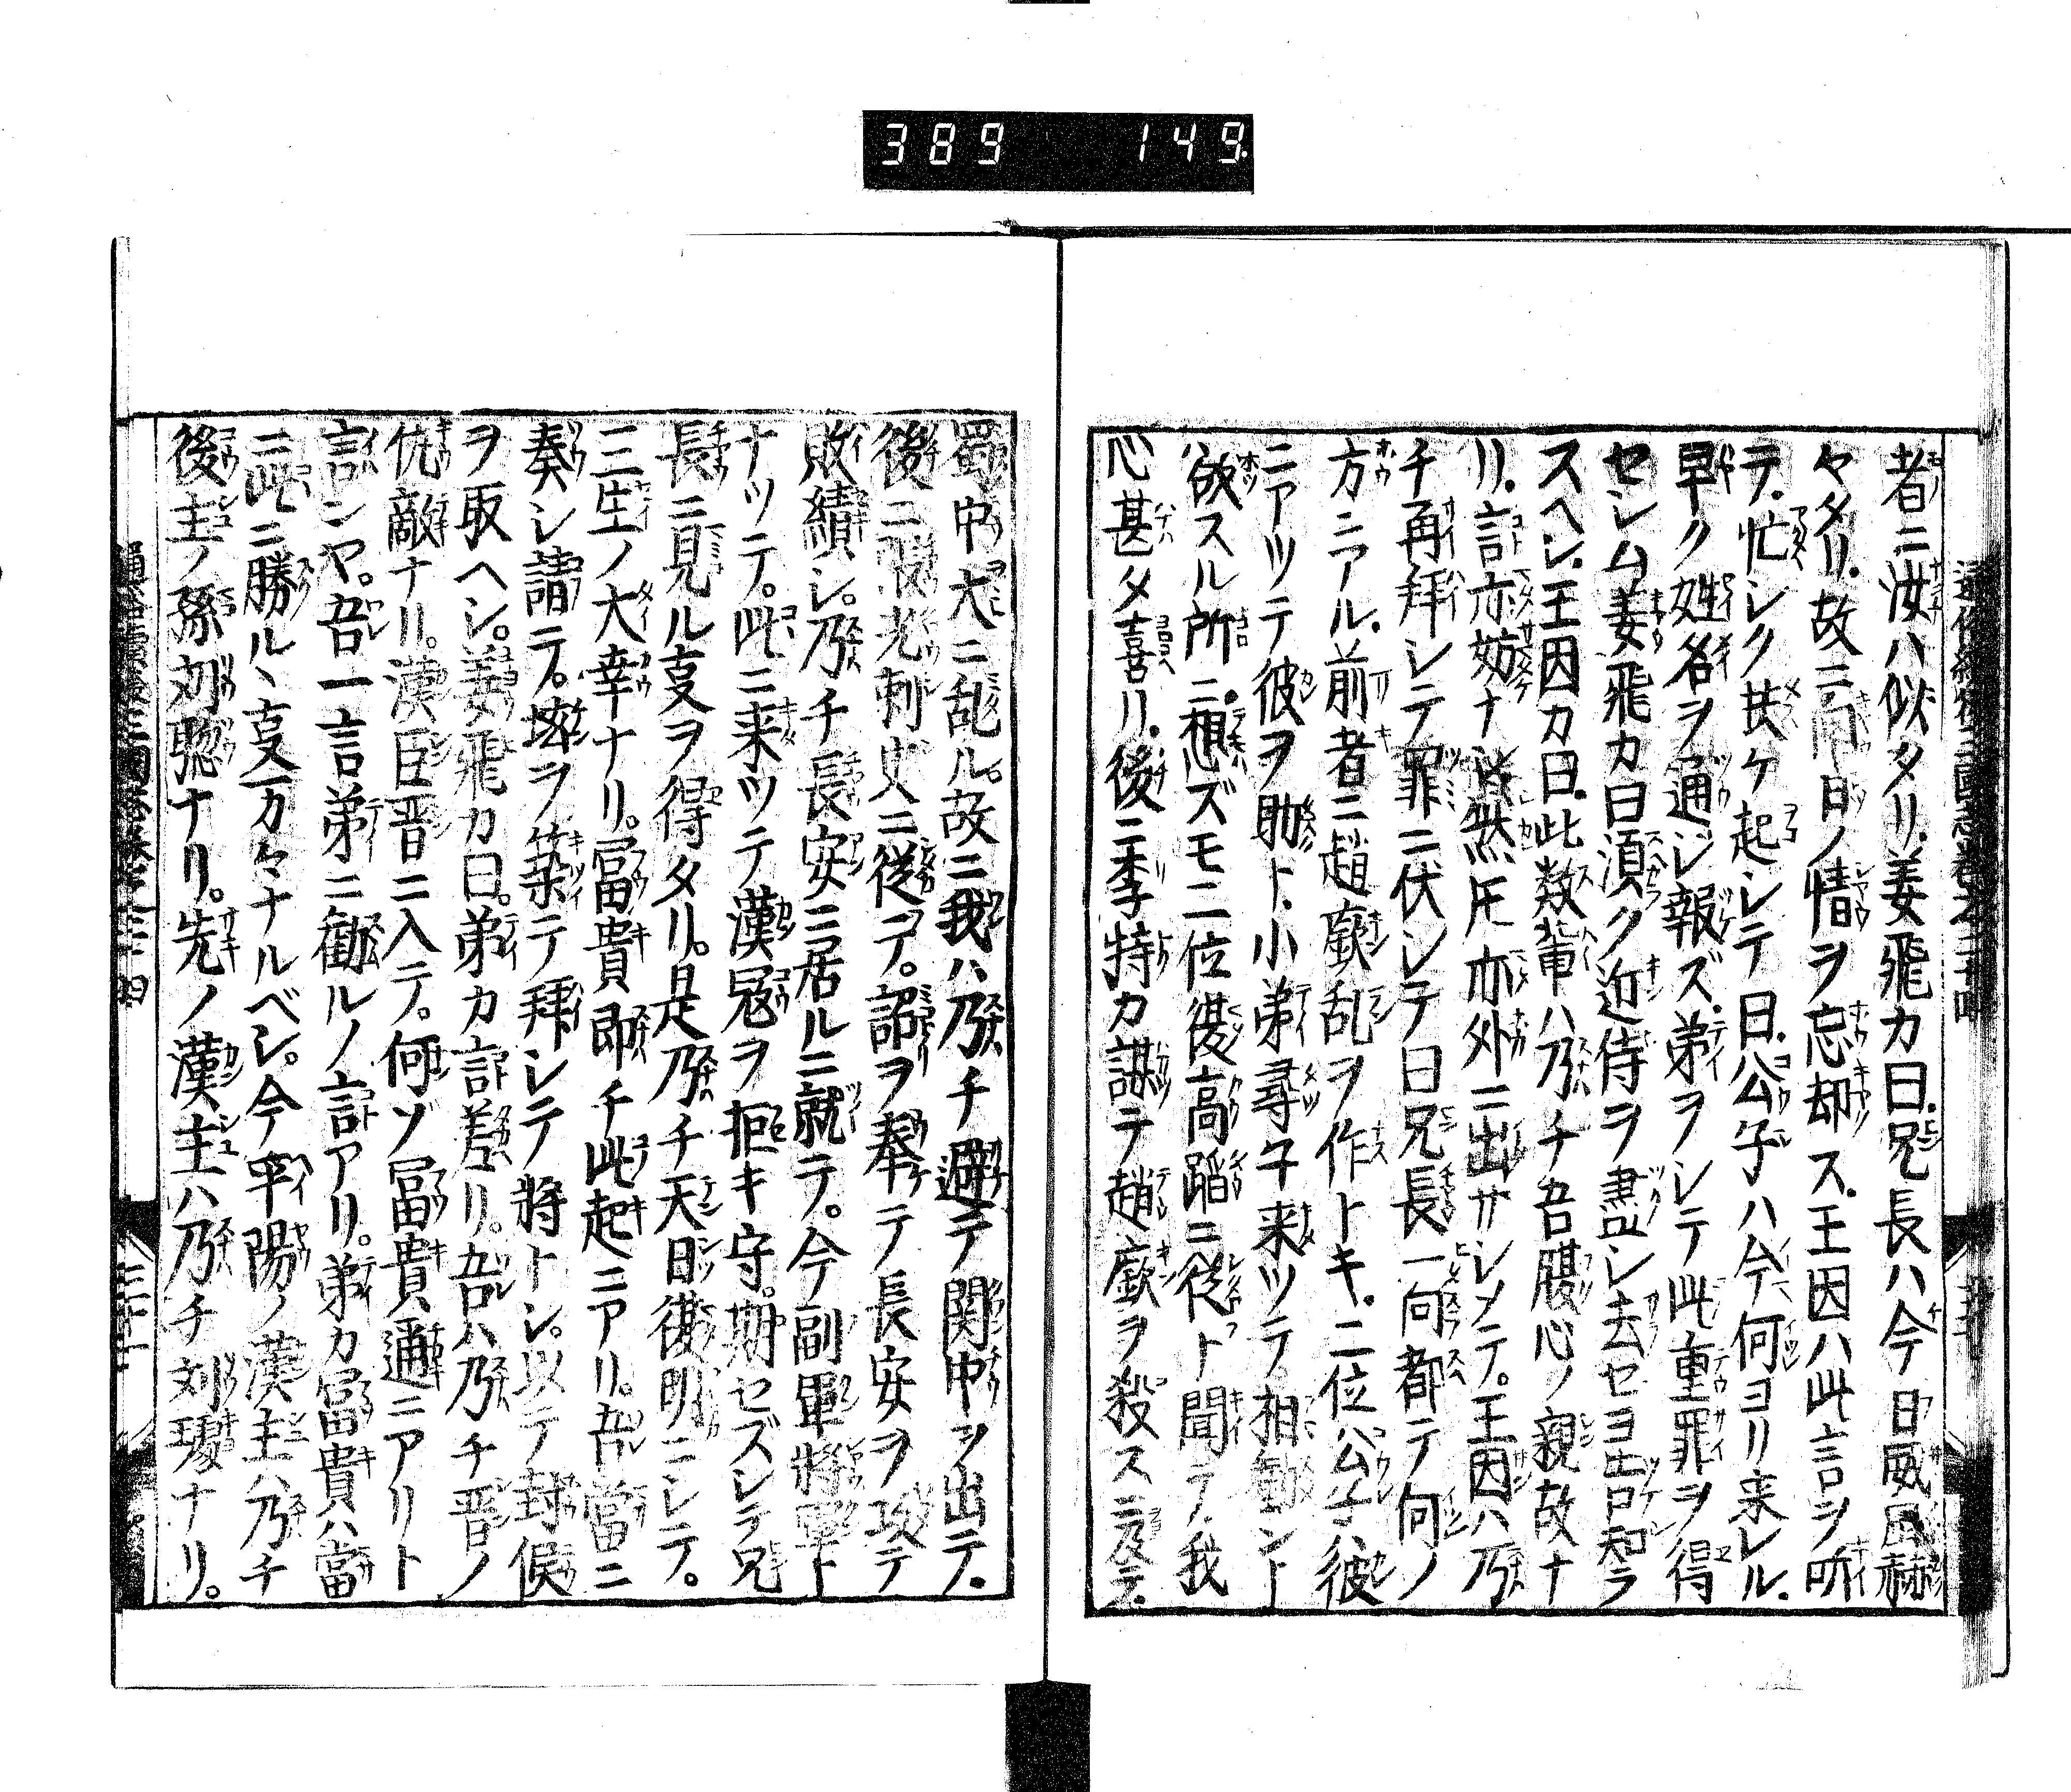 389 149
者ニ汝ハ似タリ姜飛カ曰兄長ハ今日威風赫
ヤタリ故ニ前日ノ情ヲ忘却ス王因ハ此言ヲ听
テ忙シク扶ケ起シテ曰公子ハ今何ヨリ来レル
早ク姓名ヲ通ジ報ズ弟ヲシテ此重罪ヲ得
セシム姜飛カ曰須ク近侍ヲ盡シ去セヨ告知ラ
スヘシ王因カ曰此数輩ハ乃チ吾腹心ノ親故ナ
リ言亦妨ナシ然𪜈亦外ニ出サシメテ王因ハ乃
チ再拜シテ罪ニ伏シテ曰兄長一向都テ何ノ
方ニアル前者ニ趙廞乱ヲ作トキ二位ハ公子ハ彼
ニアツテ彼ヲ助ト小弟尋子来ツテ相
欲スル所ニ想ズモ二位従高蹈ニ従ト聞テ我
心甚タ喜リ後ニ李特カ謀テ趙廞ヲ殺スニ及テ
蜀中大ニ乱ル故ニ我ハ乃チ避テ関中ヲ出テ
後ニ張光刺史ニ従テ詔ヲ奉テ長安ヲ攻テ
敗績シ乃チ長安ニ居ルニ就テ今副軍將軍ト
ナツテ此ニ来ツテ漢冦ヲ拒キ守期セズシテ兄
長ニ見ル叓ヲ得タリ是乃チ天日復明ニシテ
三生ノ大幸ナリ冨貴即チ此起ニアリ吾當ニ
奏シ請テ壇ヲ築テ拜シテ將トシ以テ封侯
ヲ取ヘシ姜飛カ曰弟カ言差リ吾ハ乃チ晋ノ
仇敵ナリ漢臣晋ニ入テ何ゾ冨貴遇ニアリト
言ンヤ吾一言弟ニ勸ルノ言アリ弟カ冨貴ハ當
ニ此ニ勝ルヽ叓万々ナルベシ今平陽ノ漢主ハ乃チ
後主ノ孫刘聰ナリ先ノ漢主ハ乃チ刘璩ナリ